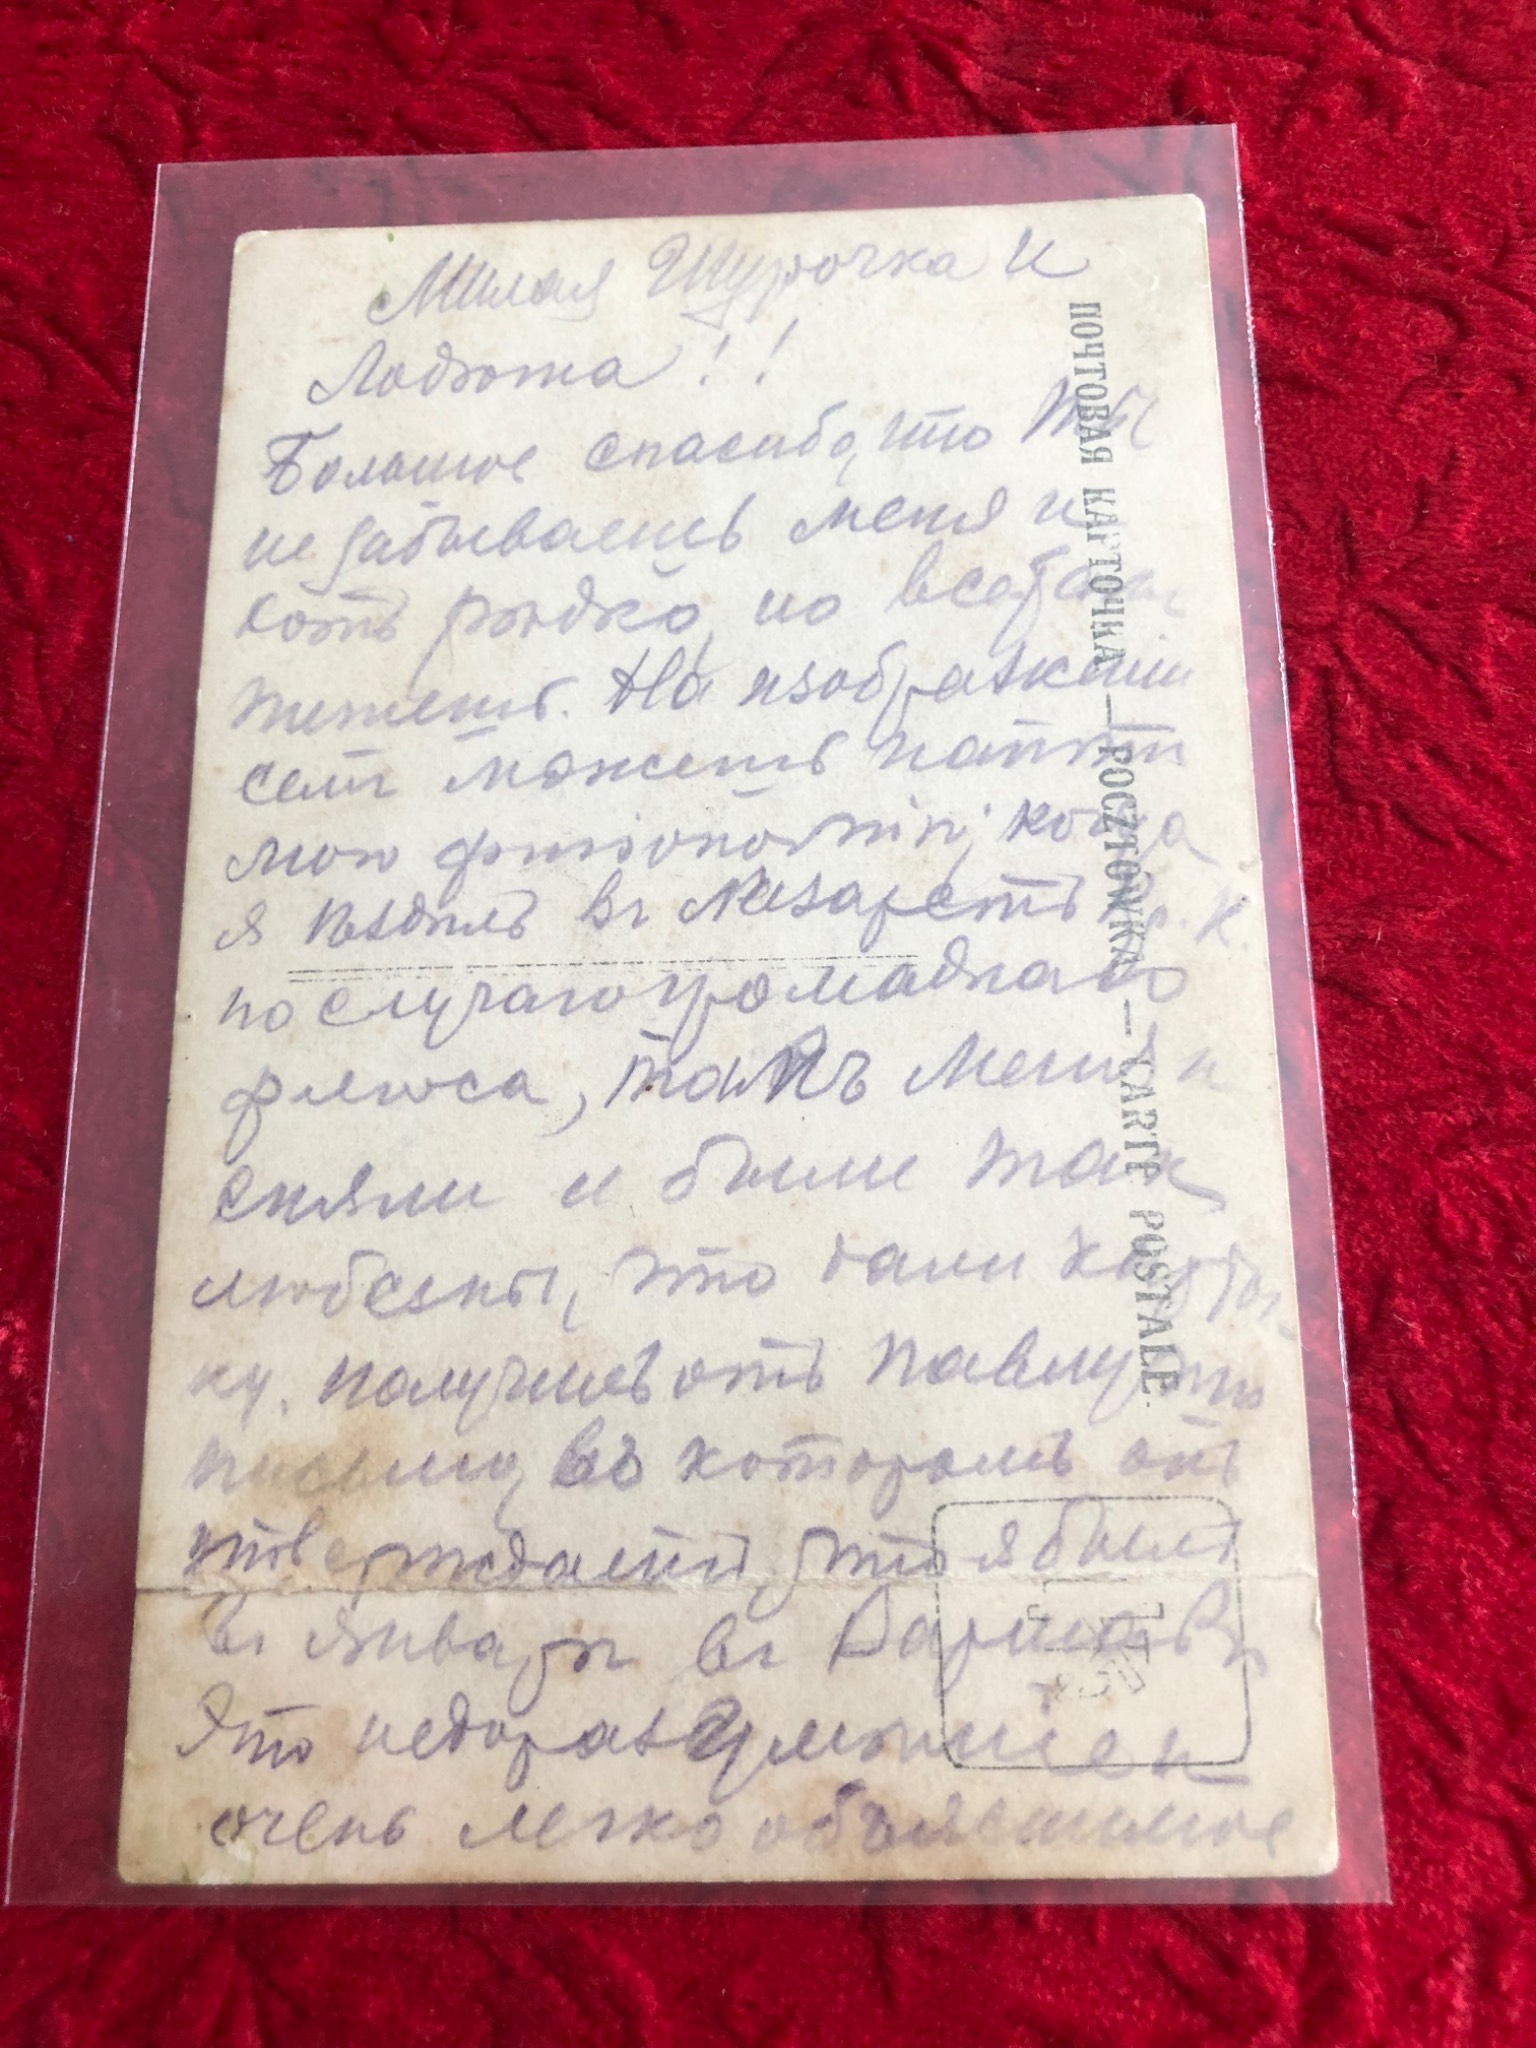 Милая Шурочка и
Лодзюта!!
Большое спасибо, что ты
не забываешь меня и
хоть рѣдко, но всетаки
пишешь. На изображеніи
семъ можешь найти
мою физіономію, когда
я ѣздилъ въ Лазаретъ К.
по случаю громаднаго
флюса, такъ меня и
сняли и были так
любезны, что дали карточ-
ку. Получилъ отъ Павлуши
письмо, въ которомъ онъ
утверждаетъ, что я былъ
въ Январѣ въ Варшавѣ,
Это недоразумѣніе и
очень легко объяснимое
ПОЧТОВАЯ КАРТОЧКА — POCZTÓWKA — CARTE POSTALE.